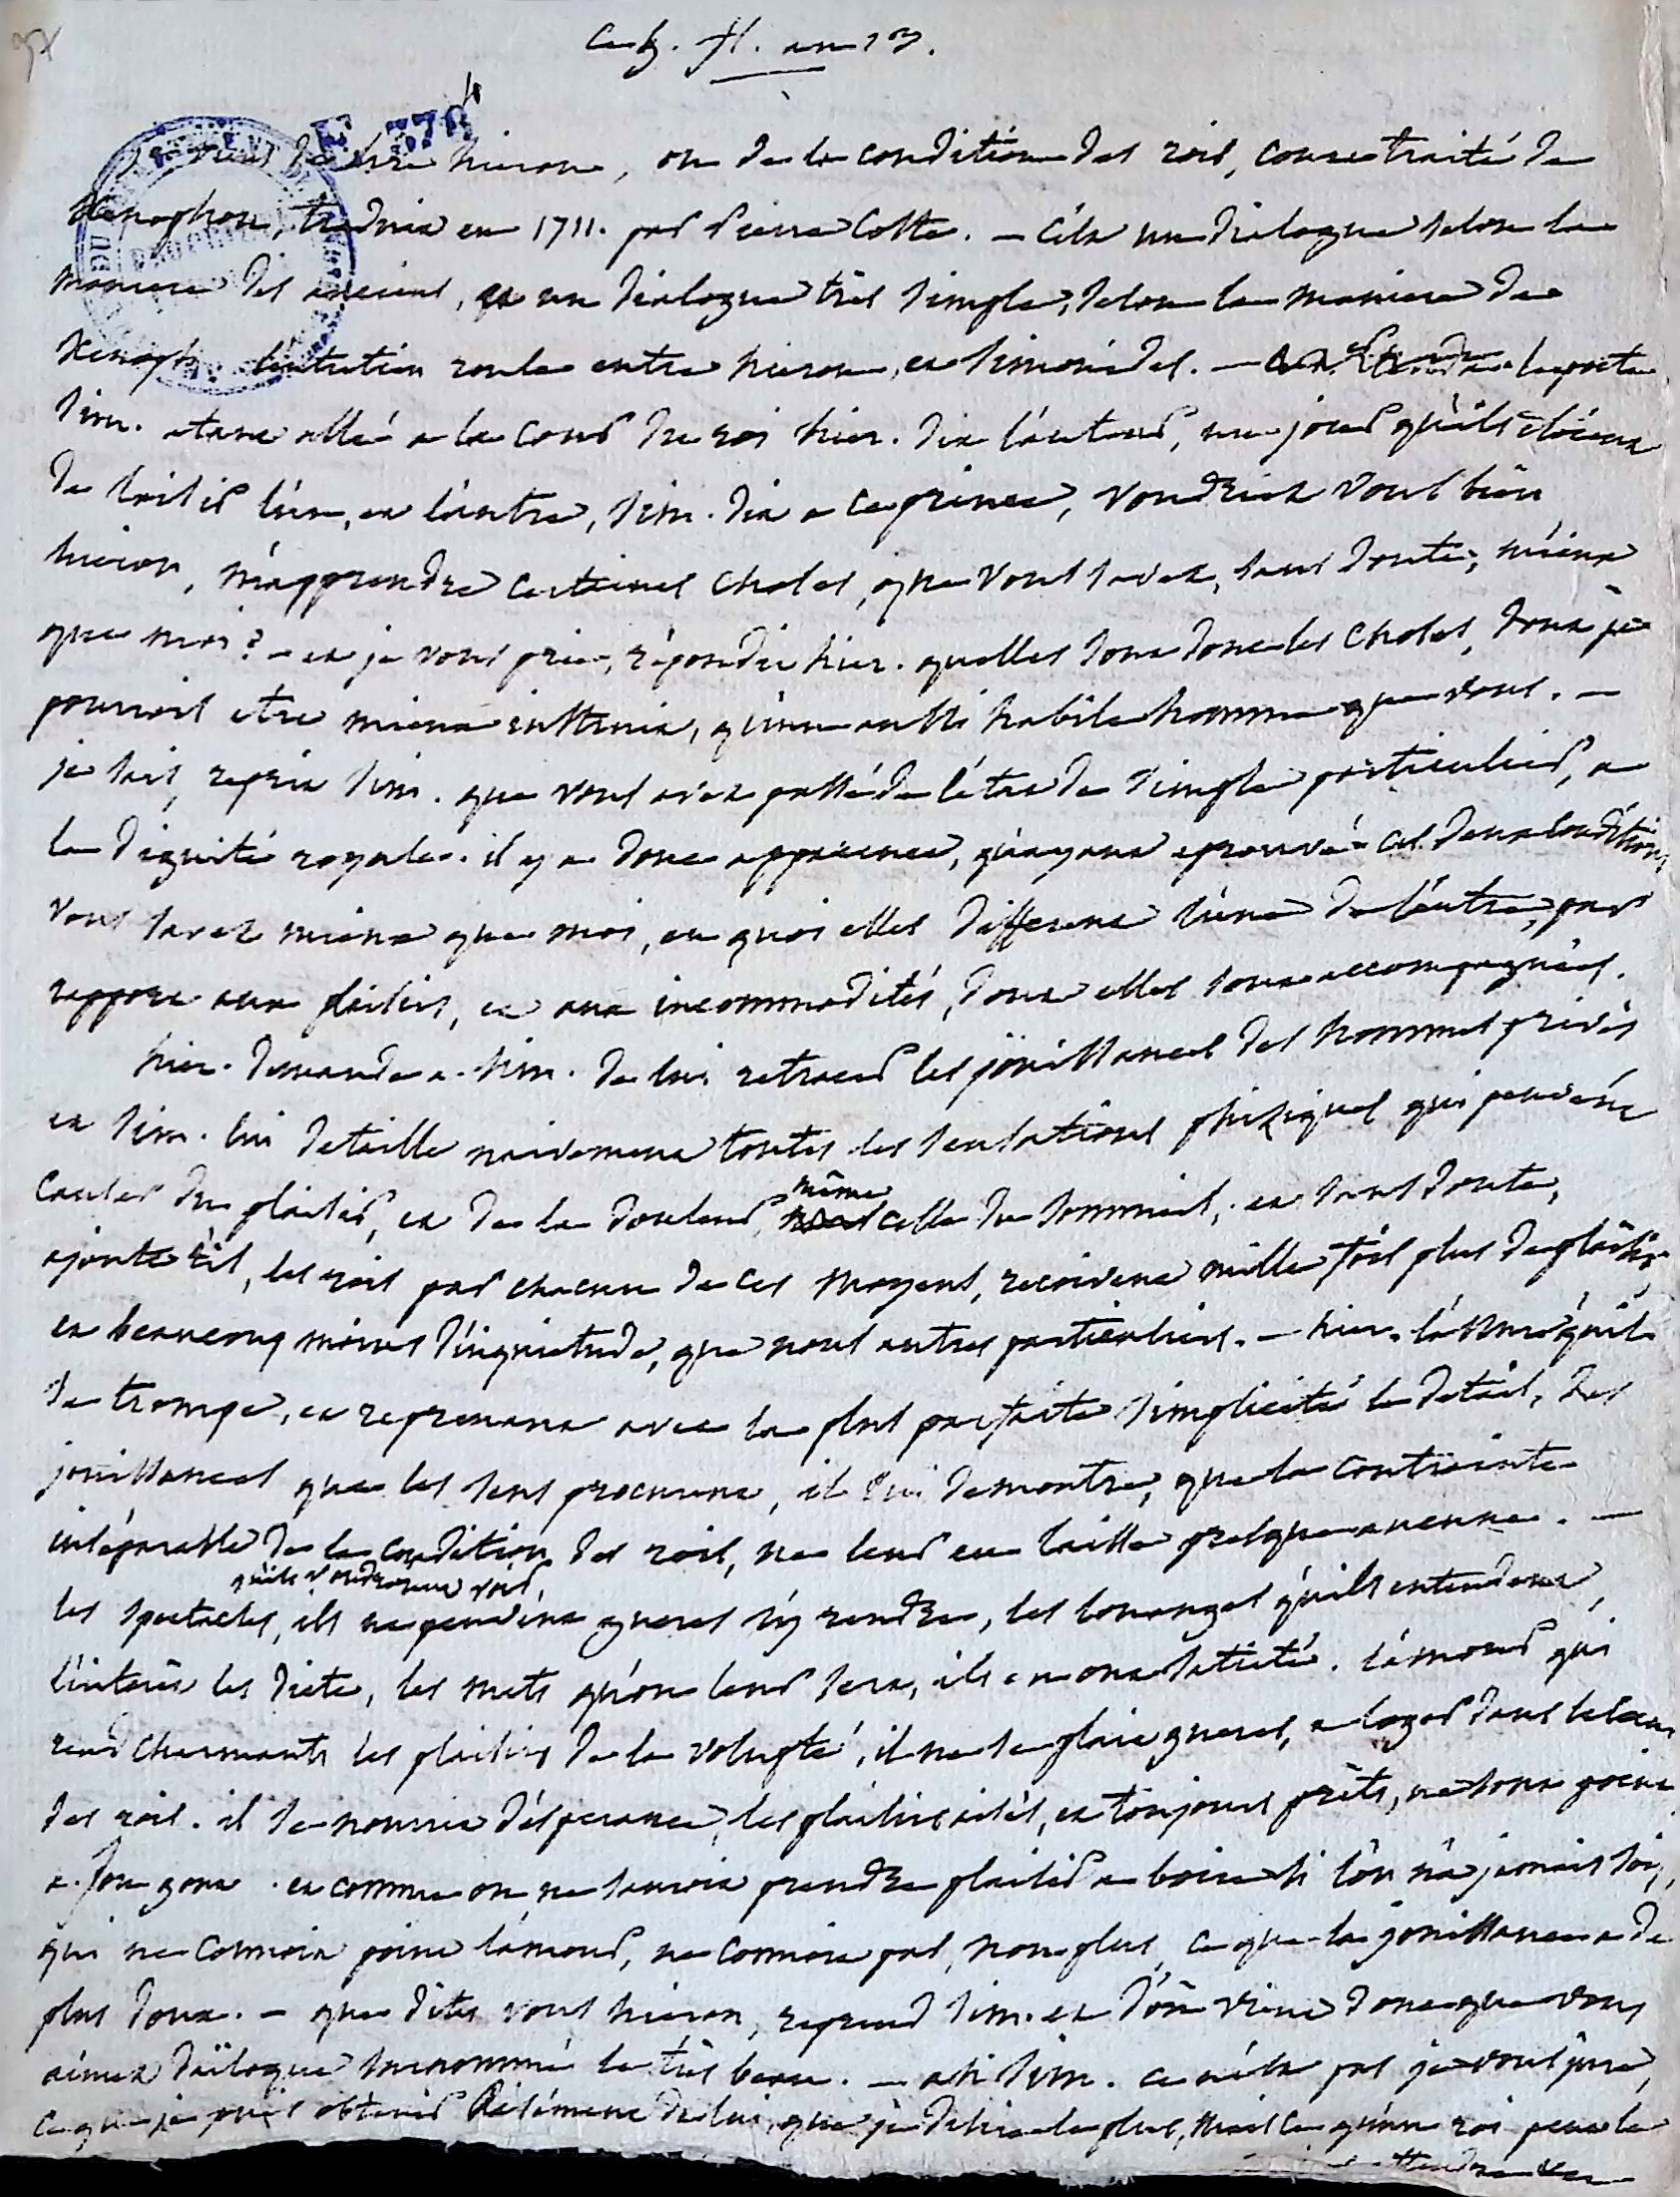 ce 5. fl. an 13.
je viens de lire hieron, ou de la condition des rois, court traité de
Xenophon, traduit en 1711. par Pierre Coste. – c'est un dialogue selon la
maniere des anciens, et un dialogue très simple, selon la maniere de
Xenoph. l'entretien roule entre hieron, et Simonides. – le poete
Sim. etant allé a la cour du roi hier. dit l'auteur, un jour qu'ils étoient
de loisir l'un, et l'autre, Sim. dit a ce prince, voudriez vous bien
hieron, m'apprendre certaines choses, que vous savez, sans doute, mieux
que moi? – et je vous prie, répondit hier. quelles sont donc les choses, dont je
pourrois etre mieux instruit, qu'un aussi habile homme que vous. –
je sais, reprit Sim. que vous avez passé de l'état de simple particulier, a
la dignité royale. il y a donc apparence, qu'ayant eprouvé ces deux conditions
vous savez mieux que moi, en quoi elles different l'une de l'autre, par
rapport aux plaisirs, et aux incommodités, dont elles sont accompagnées.
hier. demande a Sim. de lui retracer les jouissances des hommes privés
et Sim. lui detaille naivement toutes les sensations phisiques qui peuvent
causer du plaisir, et de la douleur, même celle du sommeil, et sans doute,
ajoute t'il, les rois par chacun de ces moyens, recoivent mille fois plus de plaisir
et beaucoup moins d'inquietude, que nous autres particuliers. – hier. l'assure qu'il
se trompe, et reprenant avec la plus parfaite simplicité le detail, des
jouissances que les sens procurent, il lui demontre, que la contrainte
inséparable de la condition des rois, ne leur en laisse presque aucune. –
les spectacles, qu'ils voudroient voir, ils ne peuvent gueres s'y rendre, les louanges qu'ils entendent,
l'intérêt les dicte, les mets qu'on leur sert, ils en ont satieté. l'amour qui
rend charmants les plaisirs de la volupté, il ne se plait gueres, a loger dans le cœur
des rois. il se nourrit d'esperance, les plaisirs aisés, et toujours prêts, ne sont point
a son gout. et comme on ne sauroit prendre plaisir a boire si l'on n'a jamais soif,
qui ne connoit point l'amour, ne connoit pas, non plus, ce que la jouissance a de
plus doux. – que dites vous hieron, reprend Sim. et d'où vient donc que vous
aimez Daïloque surnommé le très beau. – ah Sim. ce n'est pas je vous jure,
ce que je puis obtenir aisément de lui, que je desire le plus, mais ce qu'un roi peut le